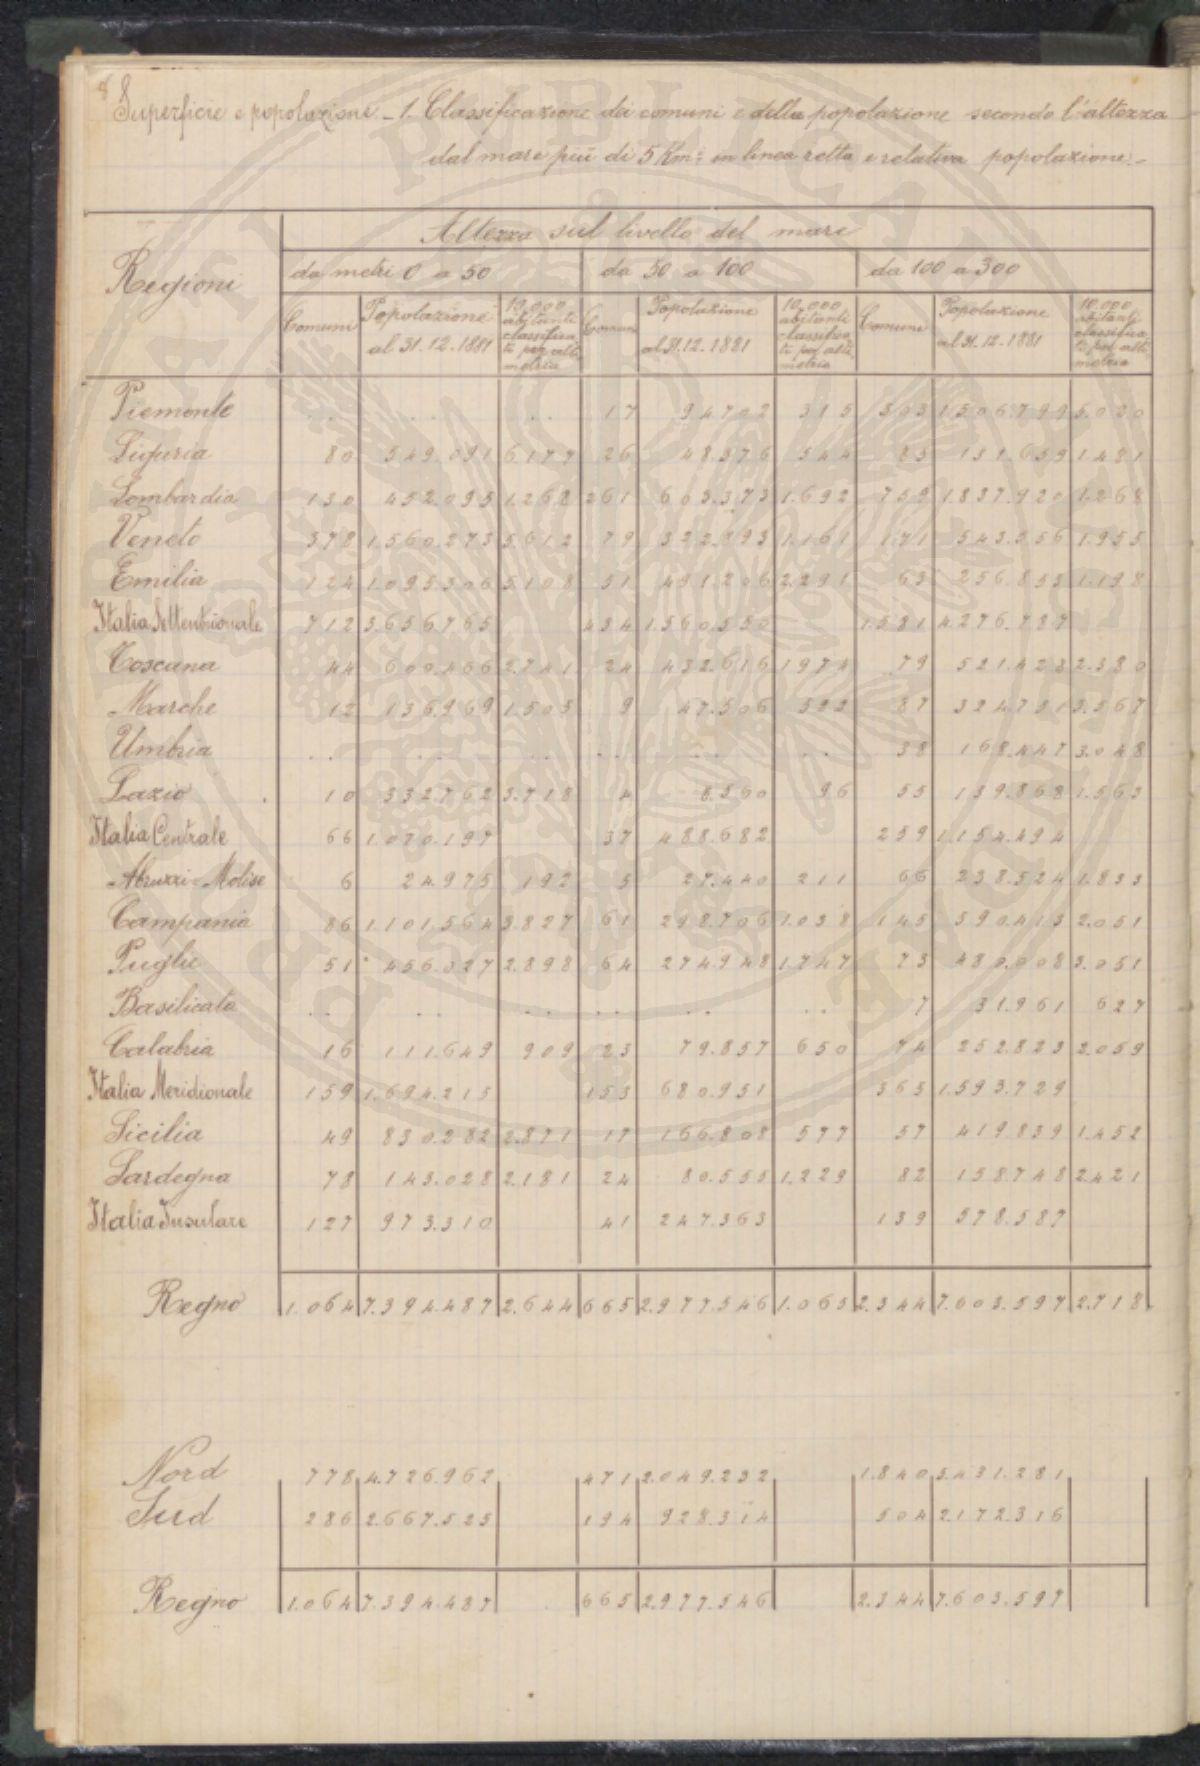 8
Superficie e popolazione _ 1. Classificazione dei comuni e della popolazione secondo l'altezza
dal mare più di 5 Km: in linea retta e relativa popolazione._
Regioni
Altezza sul livello del mare
da metri 0 a 50 da 50 a 100 da 100 a 300
Comuni Popolazione al 31.12.1881 10.000 abitanti classificati per altimetria Comuni Popolazione al 31.12.1881 10.000 abitanti classificati per altimetria Comuni Popolazione al 31.12.1881 10.000 abitanti classificati per altimetria
Piemonte .. .. .. 17 94702 315 503 1.506.799 5.020
Liguria 80 549.091 6177 26 48.376 544 85 131.659 1.481
Lombardia 130 452.095 1.262 261 603.373 1.692 759 1.837.920 1.268
Veneto 378 1.560.273 5612 79 322.893 1.161 171 543.556 1.955
Emilia 124 1.095.306 5108 51 491.206 2.291 63 256.853 1.198
Italia Settentrionale 712 3.656.765 434 1.560.550 1.581 4.276.787
Toscana 44 600.466 2.741 24 432.616 1974 79 521.428 2.380
Marche 12 136.969 1.505 9 47.506 522 87 324.751 3.567
Umbria .. .. .. .. .. .. 38 168.447 3.048
Lazio 10 332.762 3.718 4 8.560 96 55 139.868 1.563
Italia Centrale 66 1.070.197 37 488.682 259 1.154.494
Abruzzi-Molise 6 24.975 192 5 27.440 211 66 238.524 1.833
Campania 86 1.101.564 3.827 61 298.706 1.038 145 590.413 2.051
Puglie 51 456.027 2.898 64 274.948 1.747 73 480.008 3.051
Basilicata .. .. .. .. .. .. 7 31.961 627
Calabria 16 111.649 909 23 79.857 650 74 252.823 2.059
Italia Meridionale 159 1.694.215 153 680.951 365 1.593.729
Sicilia 49 830.282 2.871 17 166.808 577 57 419.839 1.452
Sardegna 78 143.028 2.181 24 80.555 1.229 82 158.748 2.421
Italia Insulare 127 973.310 41 247.363 139 578.587
Regno 1.064 7.394.487 2.644 665 2.977.546 1.065 2.344 7.603.597 2.718
Nord 778 4.726.962 471 2.049.232 1.840 5.431.281
Sud 286 2.667.525 194 928.314 504 2.172.316
Regno 1.064 7.394.487 665 2.977.546 2.344 7.603.597